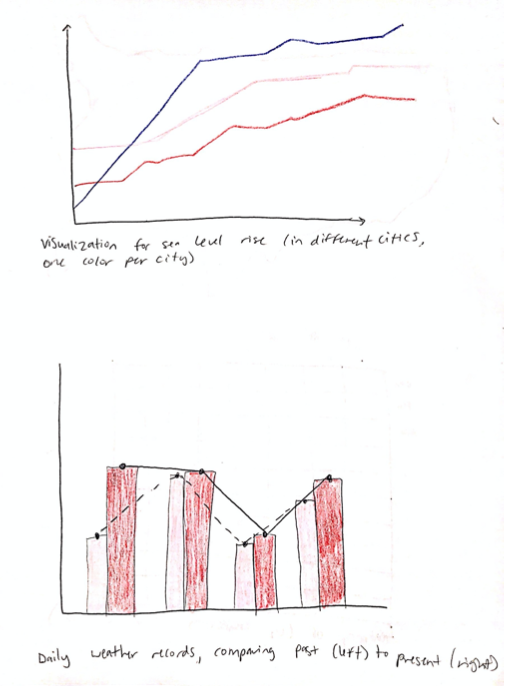 Visualization for sea level rise (in different cities,
one color per city)
Daily weather records, comparing past (left) to present (right)